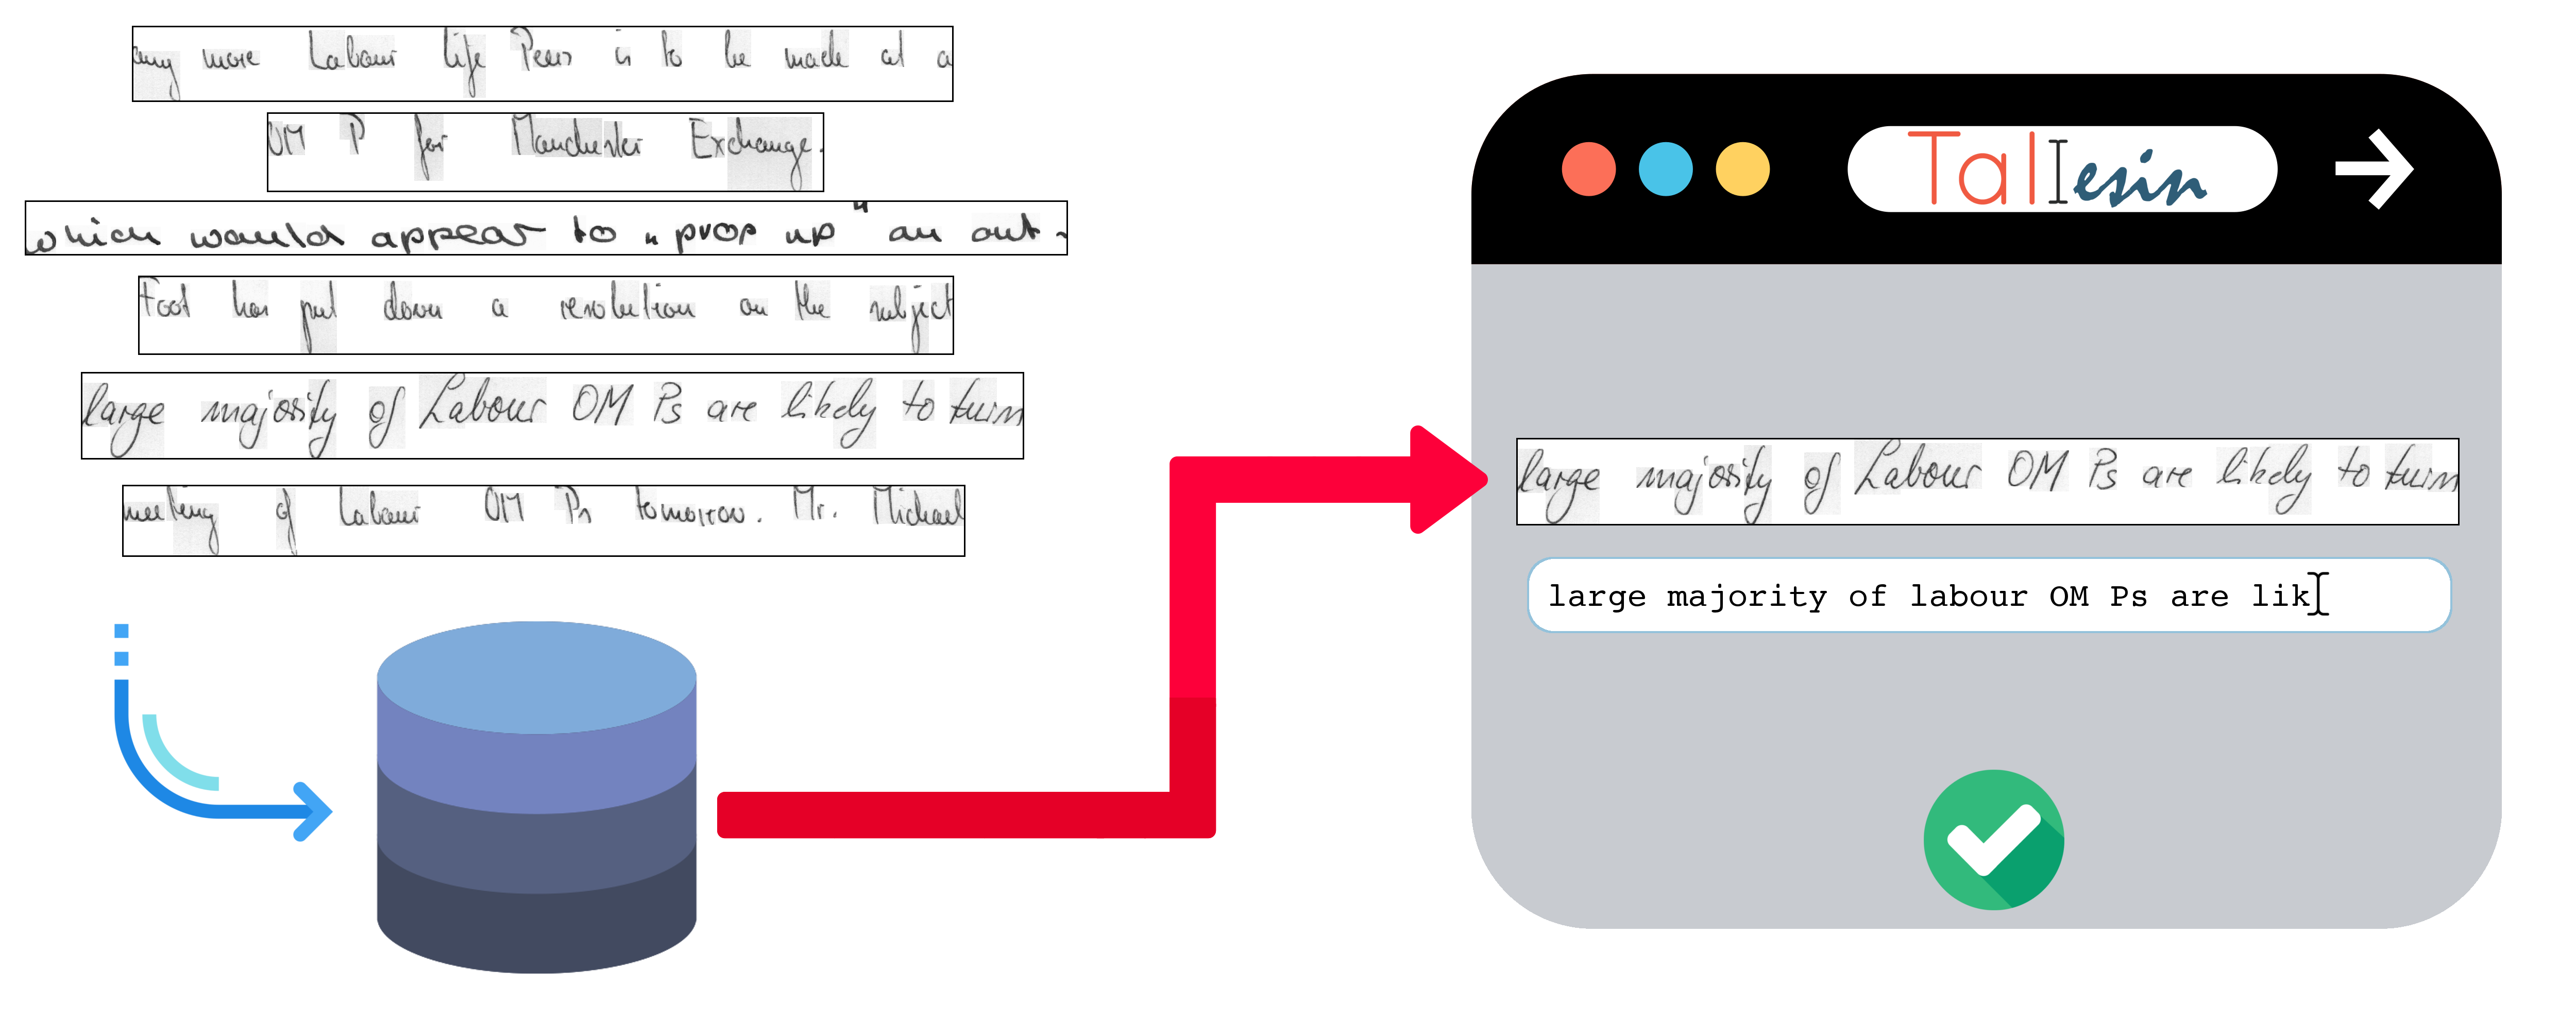 any more Labour Life Peers is to be made at a
OM P for Manchester Exchange.
which would appear to "prop up" an out-
Foot has put down a resolution on the subject
large majority of Labour OM Ps are likely to turn
meeting of Labour OM Ps tomorrow. Mr. Michael
Taliesin
large majority of Labour OM Ps are likely to turn
large majority of labour OM Ps are lik